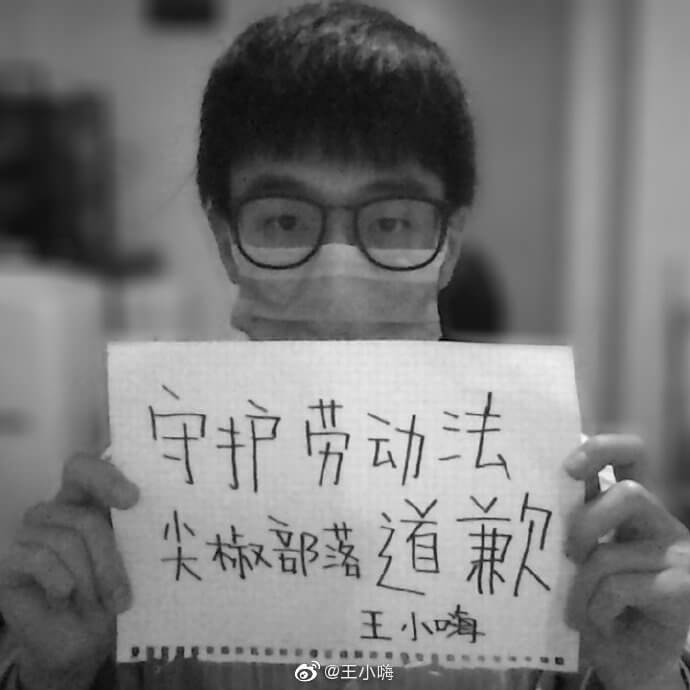 守护劳动法
尖椒部落道歉
王小嗨
@王小嗨